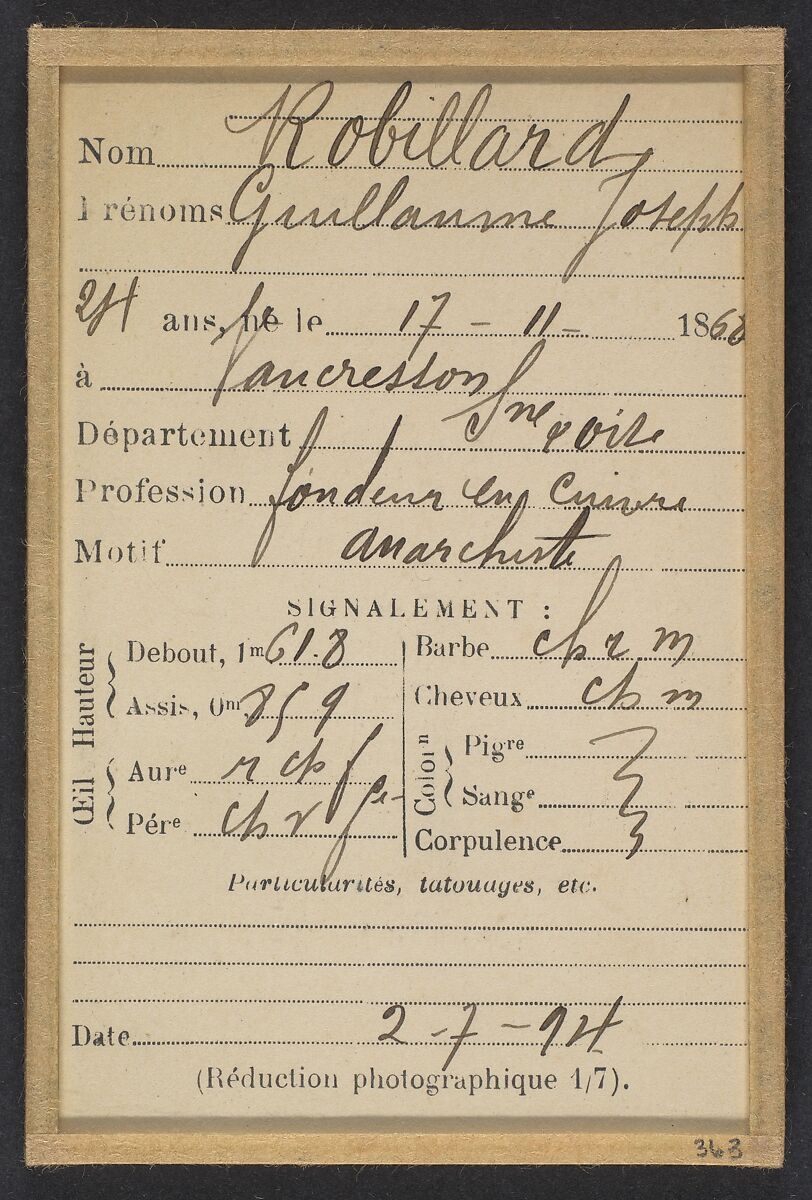 Nom Robillard
Prénoms Guillaume Joseph
24 ans, né le 17 - 11 - 1868
à Vaucresson
Département Sne & oise
Profession fondeur en cuivre
Motif anarchiste
SIGNALEMENT :
Œil Hauteur
Debout, 1m 61.8
Assis, 0m 859
Aure r ch f
Pére ch r
Barbe ch r m
Cheveux ch m
Colorn
Pigre 3
Sange 3
Corpulence
Particularités, tatouages, etc.
Date 2 - 7 - 94
(Réduction photographique 1/7).
363